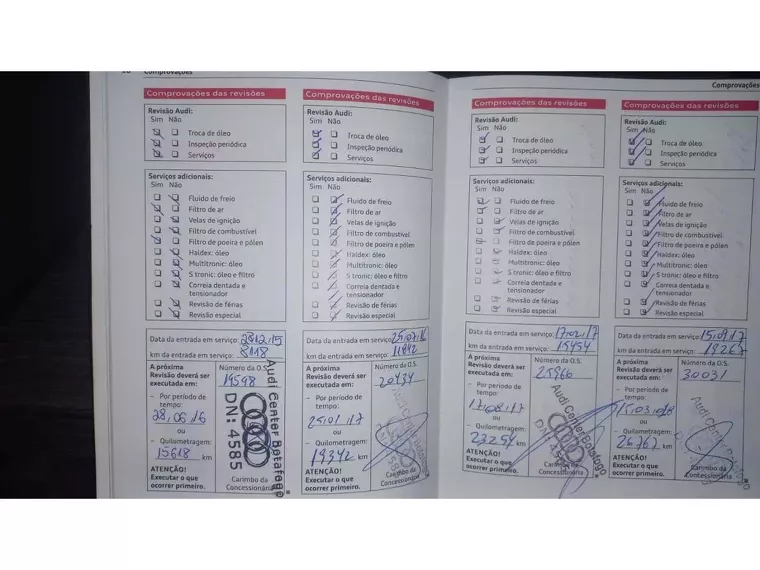 Comprovações
Comprovações das revisões
Revisão Audi:
Sim Não
Troca de óleo
Inspeção periódica
Serviços
Serviços adicionais:
Sim Não
Fluido de freio
Filtro de ar
Velas de ignição
Filtro de combustível
Filtro de poeira e pólen
Haldex: óleo
Multitronic: óleo
S tronic: óleo e filtro
Correia dentada e
tensionador
Revisão de férias
Revisão especial
Data da entrada em serviço: 28.12.15
km da entrada em serviço: 8118
A próxima
Revisão deverá ser
executada em:
Número da O.S.
19598
– Por período de
tempo:
28.06.16
ou
– Quilometragem:
15618 km
ATENÇÃO!
Executar o que
ocorrer primeiro.
Carimbo da
Concessionária
Audi Center Botafogo
DN: 4585
Comprovações das revisões
Revisão Audi:
Sim Não
Troca de óleo
Inspeção periódica
Serviços
Serviços adicionais:
Sim Não
Fluido de freio
Filtro de ar
Velas de ignição
Filtro de combustível
Filtro de poeira e pólen
Haldex: óleo
Multitronic: óleo
S tronic: óleo e filtro
Correia dentada e
tensionador
Revisão de férias
Revisão especial
Data da entrada em serviço:
km da entrada em serviço: 11842
A próxima
Revisão deverá ser
executada em:
Número da O.S.
20434
– Por período de
tempo:
25.01.17
ou
– Quilometragem:
19342 km
ATENÇÃO!
Executar o que
ocorrer primeiro.
Carimbo da
Concessionária
Comprovações
Comprovações das revisões
Revisão Audi:
Sim Não
Troca de óleo
Inspeção periódica
Serviços
Serviços adicionais:
Sim Não
Fluido de freio
Filtro de ar
Velas de ignição
Filtro de combustível
Filtro de poeira e pólen
Haldex: óleo
Multitronic: óleo
S tronic: óleo e filtro
Correia dentada e
tensionador
Revisão de férias
Revisão especial
Data da entrada em serviço: 17.02.17
km da entrada em serviço: 15754
A próxima
Revisão deverá ser
executada em:
Número da O.S.
25966
– Por período de
tempo:
17.08.17
ou
– Quilometragem:
23254 km
ATENÇÃO!
Executar o que
ocorrer primeiro.
Carimbo da
Concessionária
Audi Center Botafogo
Comprovações das revisões
Revisão Audi:
Sim Não
Troca de óleo
Inspeção periódica
Serviços
Serviços adicionais:
Sim Não
Fluido de freio
Filtro de ar
Velas de ignição
Filtro de combustível
Filtro de poeira e pólen
Haldex: óleo
Multitronic: óleo
S tronic: óleo e filtro
Correia dentada e
tensionador
Revisão de férias
Revisão especial
Data da entrada em serviço: 15.09.17
km da entrada em serviço: 19267
A próxima
Revisão deverá ser
executada em:
Número da O.S.
30031
– Por período de
tempo:
15.03.18
ou
– Quilometragem:
26767 km
ATENÇÃO!
Executar o que
ocorrer primeiro.
Carimbo da
Concessionária
Audi Center Botafogo